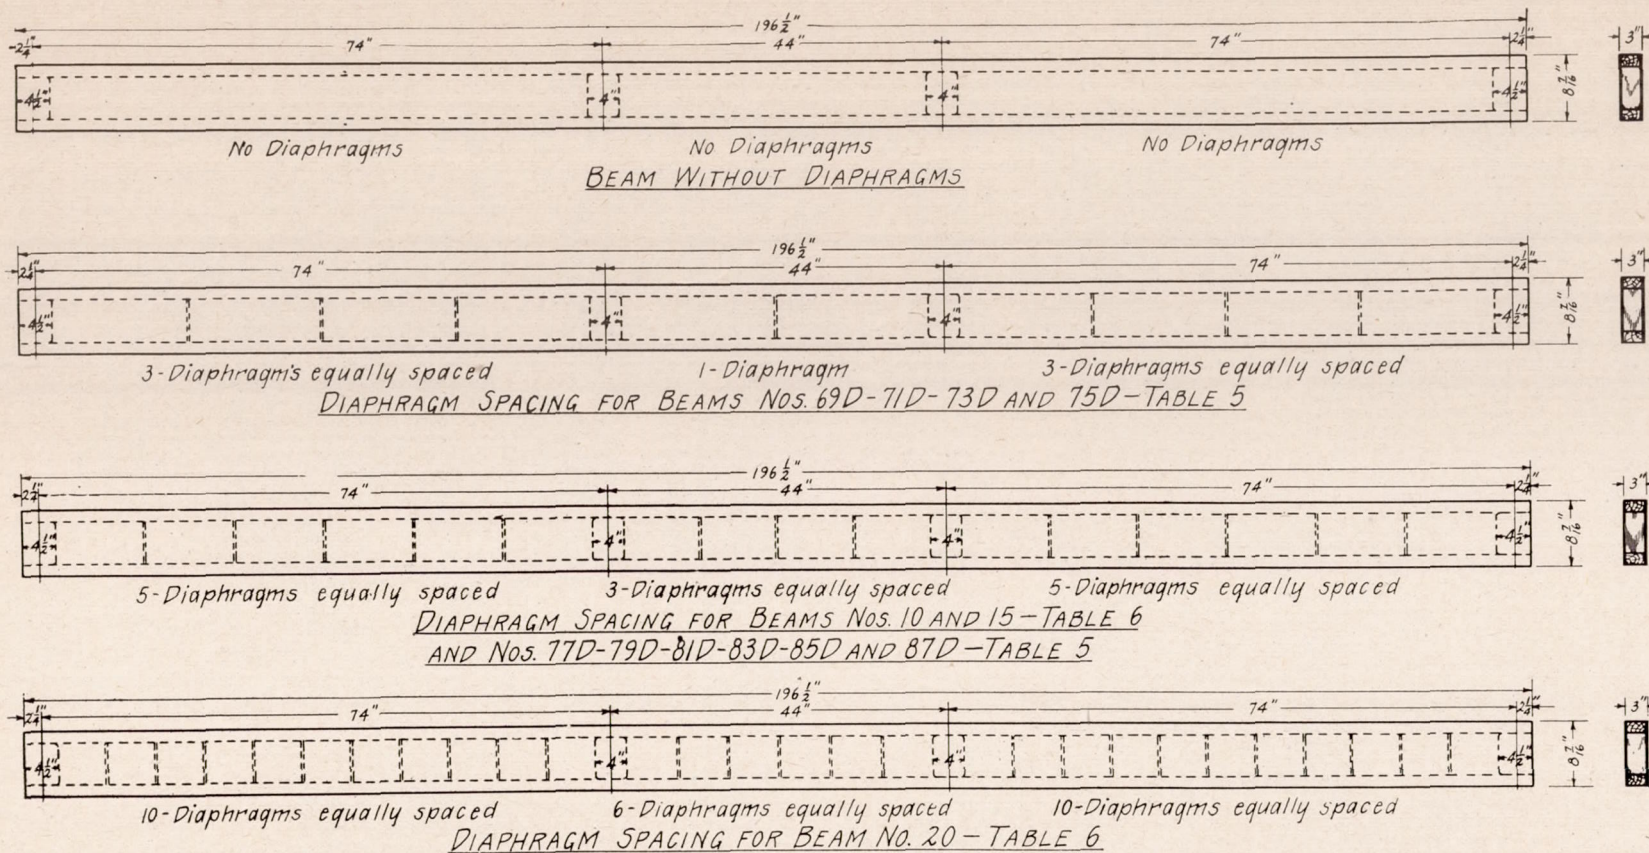 196 1/2"
2 1/4" 74" 44" 74" 2 1/4" 3"
4 1/2" 4" 4" 4 1/2" 8 7/16"
No Diaphragms No Diaphragms No Diaphragms
BEAM WITHOUT DIAPHRAGMS
196 1/2"
2 1/4" 74" 44" 74" 2 1/4" 3"
4 1/2" 4" 4" 4 1/2" 8 7/16"
3-Diaphragm's equally spaced 1-Diaphragm 3-Diaphragms equally spaced
DIAPHRAGM SPACING FOR BEAMS NOS. 69D-71D-73D AND 75D-TABLE 5
196 1/2"
2 1/4" 74" 44" 74" 2 1/4" 3"
4 1/2" 4" 4" 4 1/2" 8 7/16"
5-Diaphragms equally spaced 3-Diaphragms equally spaced 5-Diaphragms equally spaced
DIAPHRAGM SPACING FOR BEAMS NOS. 10 AND 15-TABLE 6
AND NOS. 77D-79D-81D-83D-85D AND 87D-TABLE 5
196 1/2"
2 1/4" 74" 44" 74" 2 1/4" 3"
4 1/2" 4" 4" 4 1/2" 8 7/16"
10-Diaphragms equally spaced 6-Diaphragms equally spaced 10-Diaphragms equally spaced
DIAPHRAGM SPACING FOR BEAM NO. 20-TABLE 6